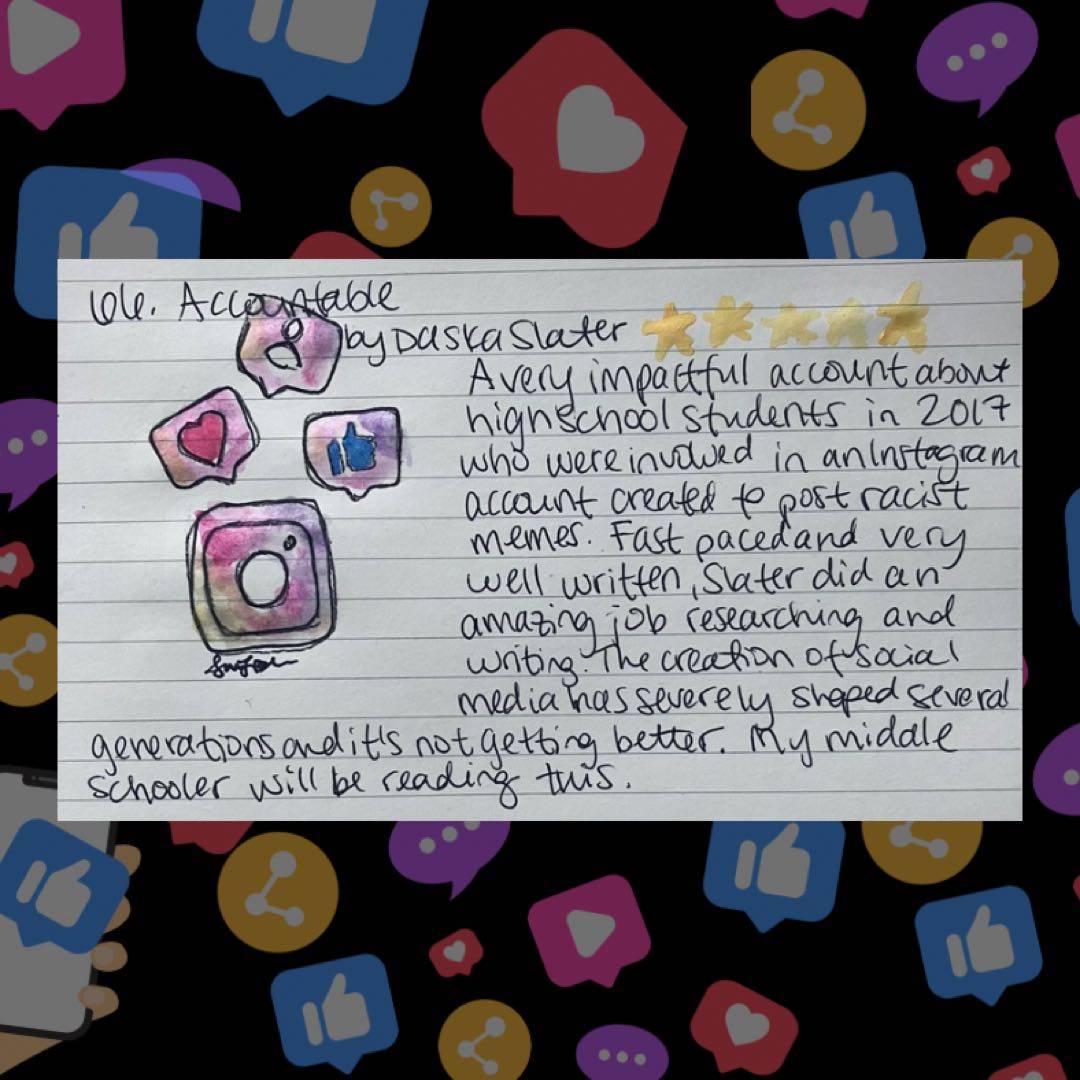 66. Accountable
by Daska Slater
A very impactful account about
high school students in 2017
who were involved in an Instagram
account created to post racist
memes. Fast paced and very
well written, Slater did an
amazing job researching and
writing. The creation of social
media has severely shaped several
generations and it's not getting better. My middle
schooler will be reading this.